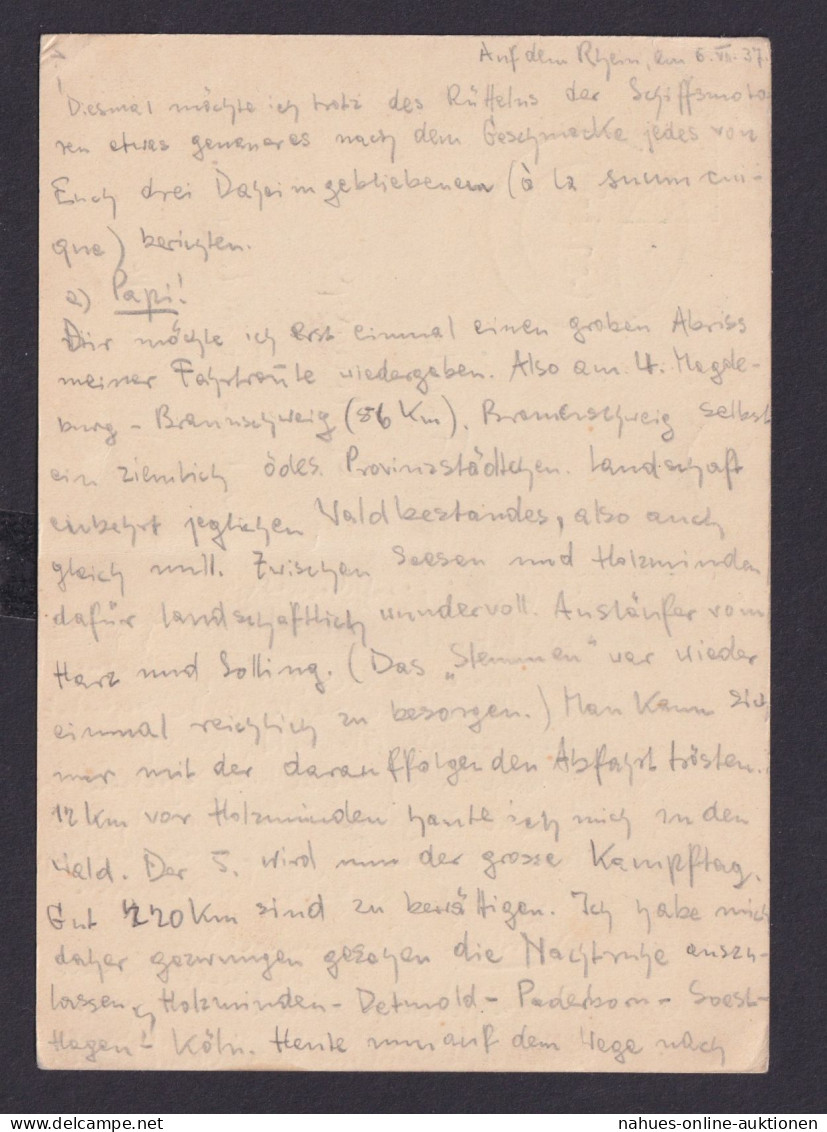 Auf dem Rhein, am 6. VII. 37.
Diesmal möchte ich trotz des Rüttelns der Schiffsmoto-
ren etwas genaueres nach dem Geschmacke jedes von
Euch drei Daheimgebliebenen (à la suum cui-
que) berichten.
a) Papi!
Dir möchte ich erst einmal einen groben Abriss
meiner Fahrtroute wiedergeben. Also am 4. Magde-
burg - Braunschweig (86 Km). Braunschweig selbst
ein ziemlich ödes Provinzstädtchen. Landschaft
entbehrt jeglichen Waldbestandes, also auch
gleich null. Zwischen Seesen und Holzminden
dafür landschaftlich wundervoll. Ausläufer vom
Harz und Solling. (Das „Stemmen" war wieder
einmal reichlich zu besorgen.) Man kann sich
nur mit der darauffolgenden Abfahrt trösten.
12 Km vor Holzminden haute ich mich in den
Wald. Der 5. wird nun der grosse Kampftag.
Gut 220 Km sind zu bewältigen. Ich habe mich
daher gezwungen gesehen die Nachtruhe auszu-
lassen. Holzminden - Detmold - Paderborn - Soest-
Hagen - Köln. Heute nun auf dem Wege nach
nahues-online-auktionen.com